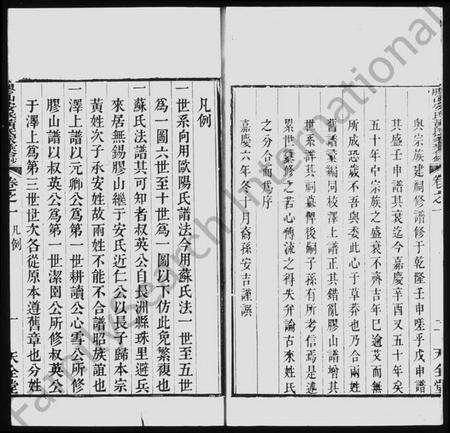 卷之一
天全堂
與宗族建祠修譜修于乾隆壬申嗟乎戊申譜
其盛壬申譜其衰迄今嘉慶辛酉又五十年矣
五十年中宗族之盛衰不齊吉年巳逾艾而無
所成恐歲不吾與委此心于草莽也乃合兩姓
舊譜彙編同校澤上譜正其錯亂膠山譜增其
世系幷其祠墓俾後嗣子孫有所考信焉是遂
累世彙修之苦心傳流之得失弁論古來姓氏
之分合而爲序
嘉慶六年冬十月裔孫安吉謹譔
凡例
一世系向用歐陽氏譜法今用蘇氏法一世至五世
爲一圖六世至十世爲一圖以下仿此免繁複也
一蘇氏法譜其可知者叔英公自長洲縣珠里避兵
來居無錫膠山繼于安氏近仁公以長子歸本宗
黃姓次子承安姓故兩姓不能不合譜昭族誼也
一澤上譜以元卿公爲第一世耕讀公心雪公所修
膠山譜以叔英公爲第一世潔園公所修叔英公
于澤上爲第三世世次各從原本遵舊章也分姓
卷之一 凡例 一 天全堂
FamilySearch International